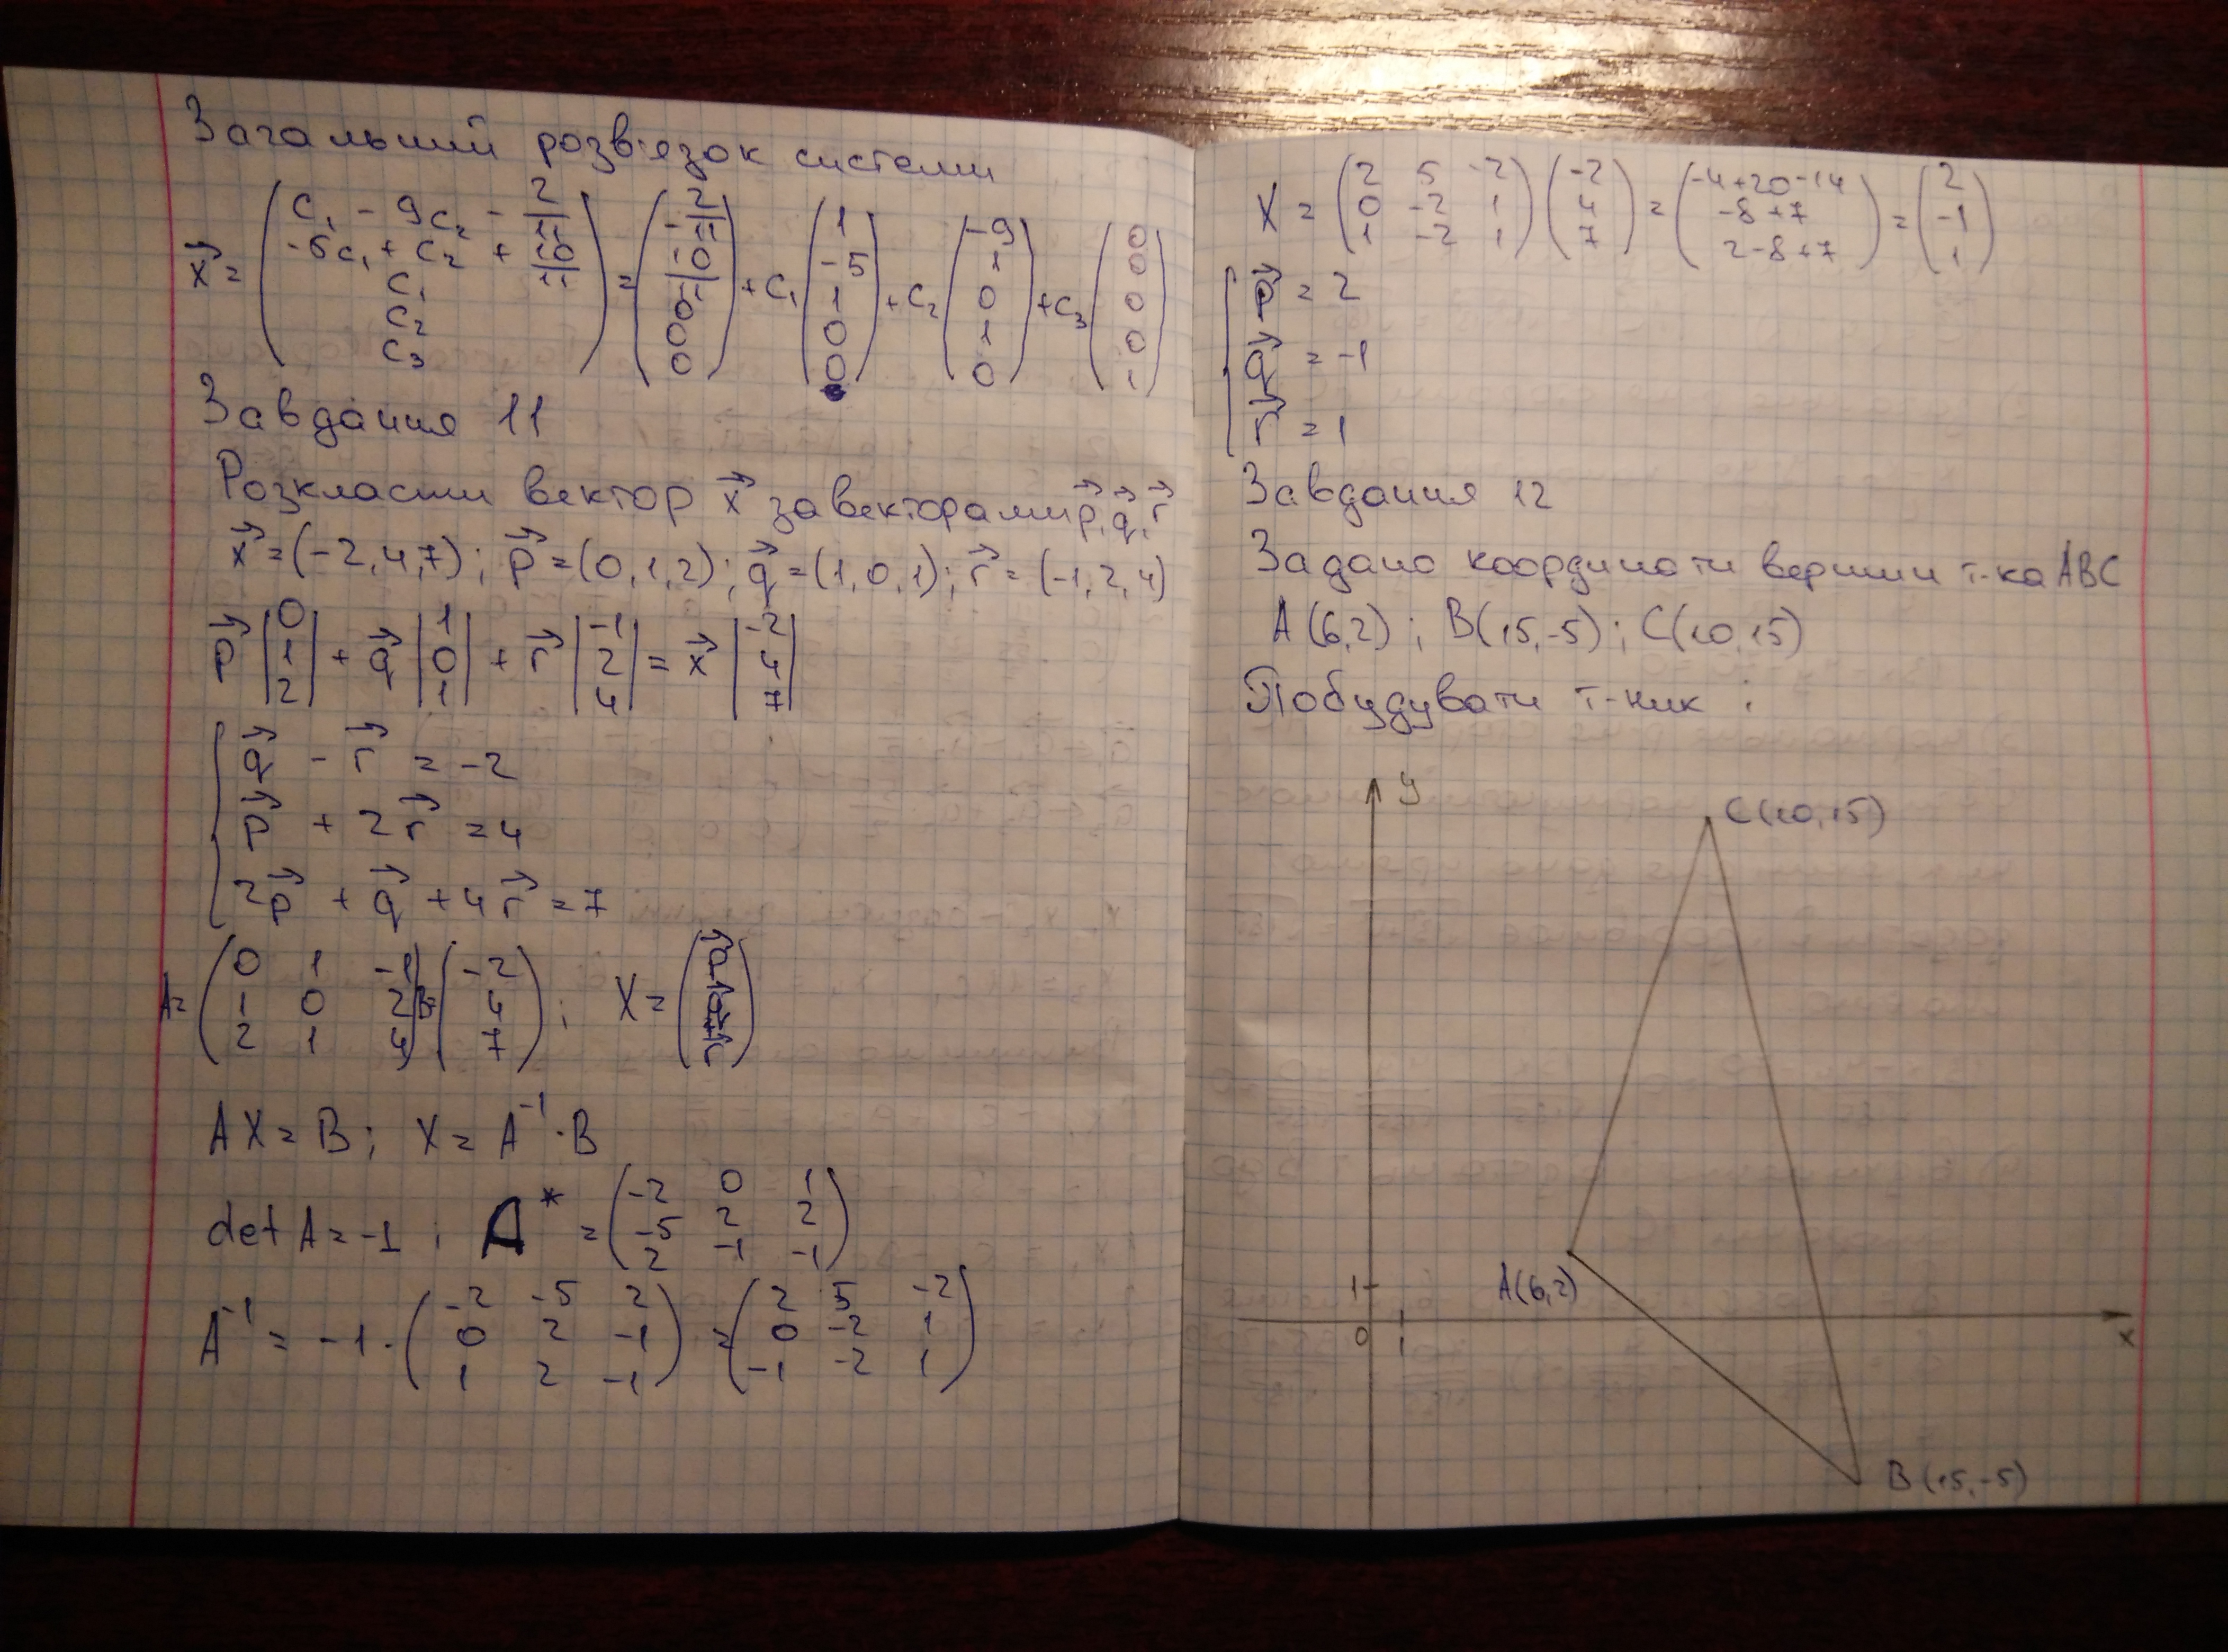 Загальний розв'язок системи
x⃗ = (C₁ - 9C₂ - 2/11; -5C₁ + C₂ + 10/11; C₁; C₂; C₃) = (-2/11; 10/11; 0; 0; 0) + C₁ (1; -5; 1; 0; 0) + C₂ (-9; 1; 0; 1; 0) + C₃ (0; 0; 0; 0; 1)
Завдання 11
Розкласти вектор x⃗ за векторами p⃗, q⃗, r⃗
x⃗ = (-2,4,7); p⃗ = (0,1,2); q⃗ = (1,0,1); r⃗ = (-1,2,4)
p⃗ |0; 1; 2| + q⃗ |1; 0; 1| + r⃗ |-1; 2; 4| = x⃗ |-2; 4; 7|
q⃗ - r⃗ = -2
p⃗ + 2r⃗ = 4
2p⃗ + q⃗ + 4r⃗ = 7
A = (0 1 -1; 1 0 2; 2 1 4) B = (-2; 4; 7); X = (p⃗; q⃗; r⃗)
AX = B; X = A⁻¹·B
det A = -1; A* = (-2 0 1; -5 2 2; 2 -1 -1)
A⁻¹ = -1·(-2 -5 2; 0 2 -1; 1 2 -1) = (2 5 -2; 0 -2 1; -1 -2 1)
X = (2 5 -2; 0 -2 1; 1 -2 1) (-2; 4; 7) = (-4+20-14; -8+7; 2-8+7) = (2; -1; 1)
p⃗ = 2
q⃗ = -1
r⃗ = 1
Завдання 12
Задано координати вершин т-ка ABC
A(6,2); B(15,-5); C(10,15)
Побудувати т-ник і
y
C(10,15)
A(6,2)
1
0
1
x
B(15,-5)